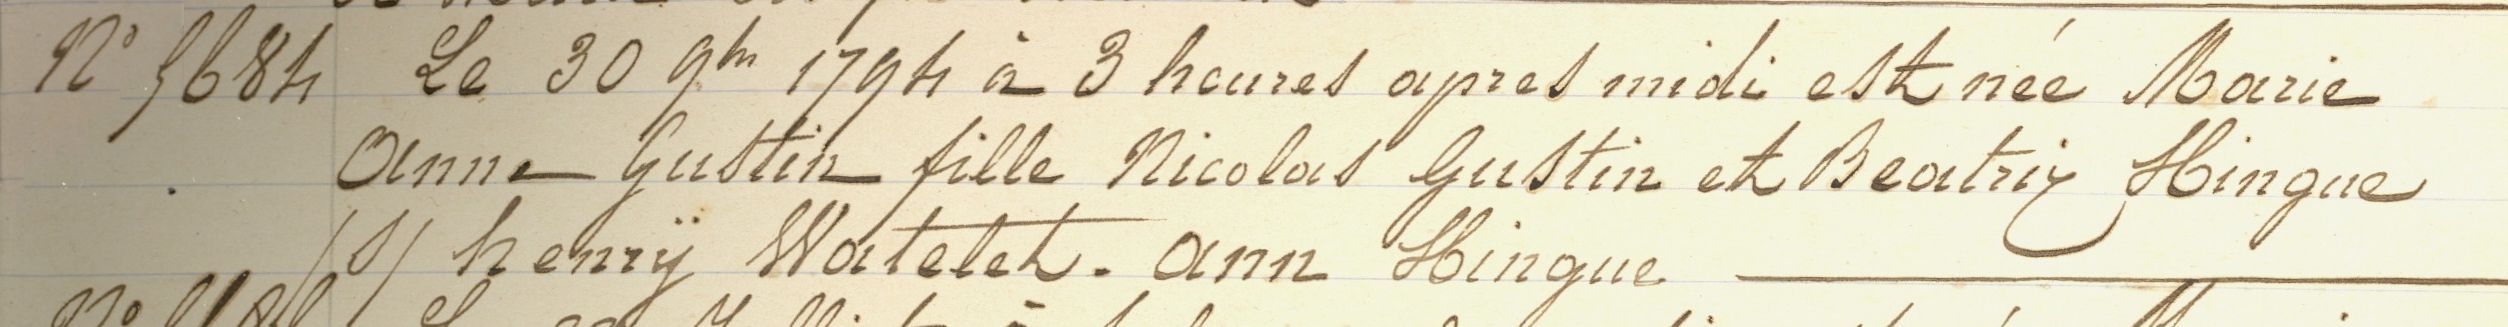 N° 5684 Le 30 9bre 1794 à 3 heures apres midi est née Marie
Anne Gustin fille Nicolas Gustin et Beatrix Hingue
/S/ henrÿ Watelet. Ann Hingue